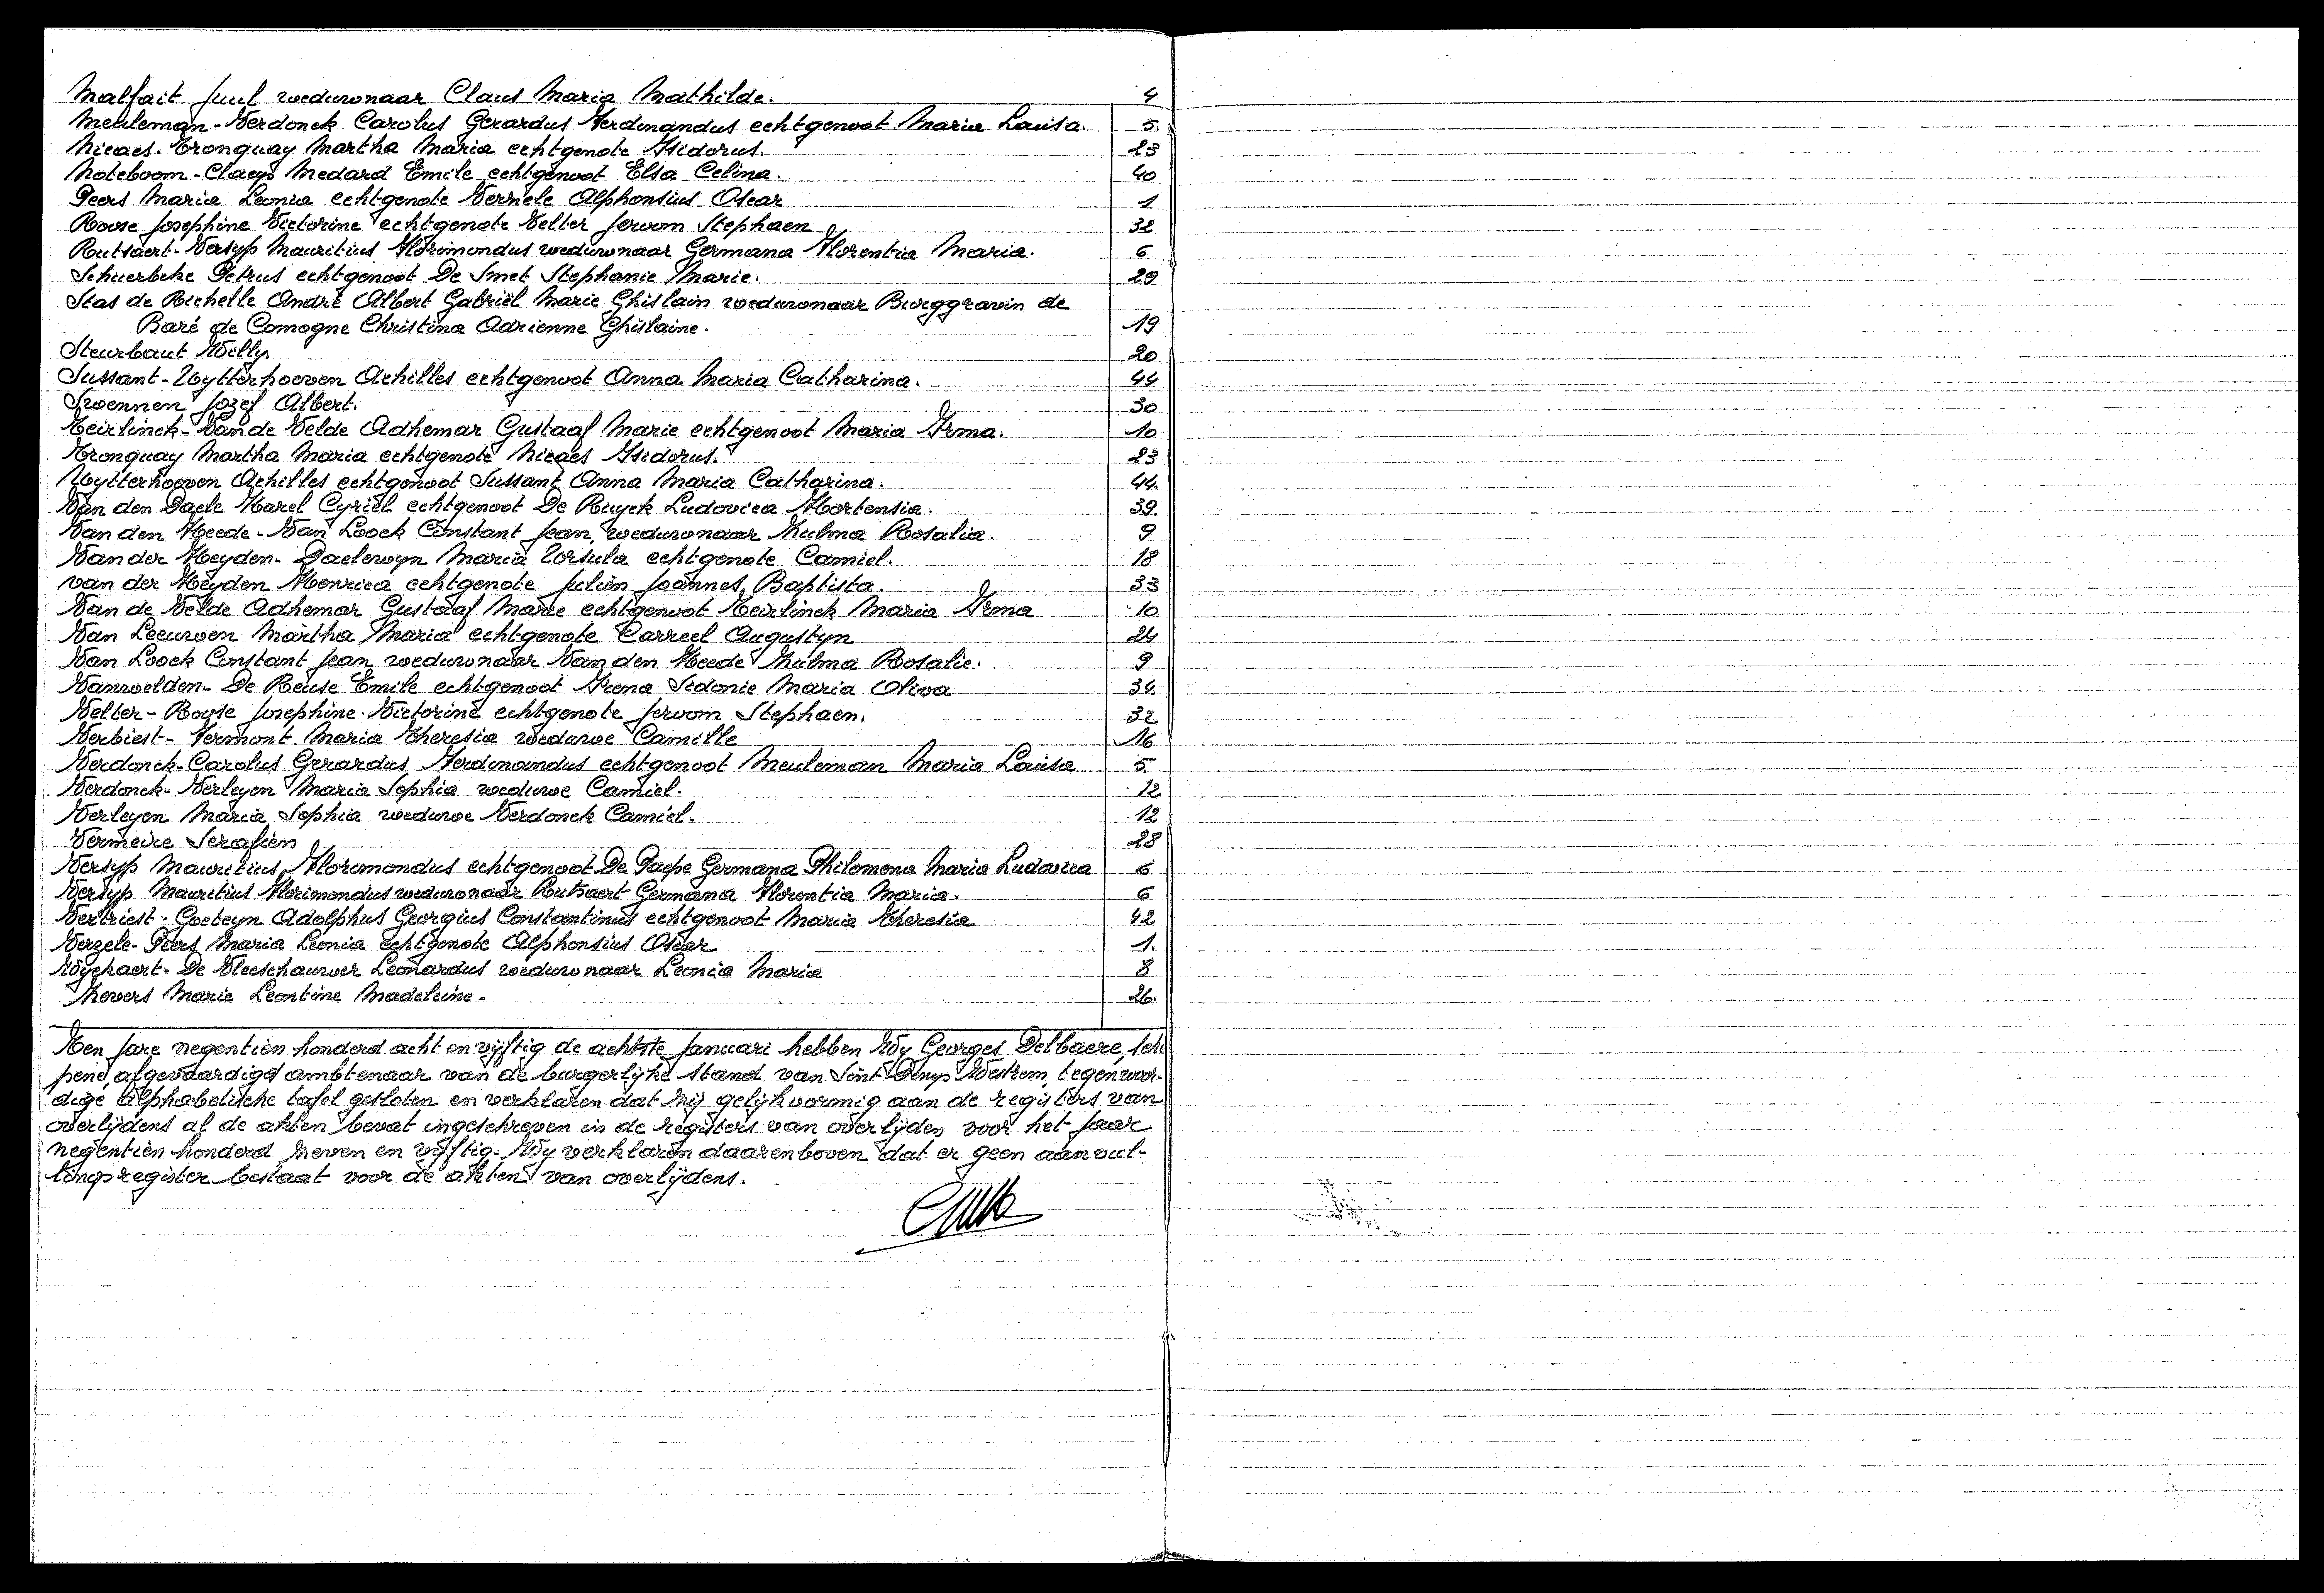 Malfait Juul weduwnaar Claus Maria Mathilde. 4
Meuleman-Verdonck Carolus Gerardus Ferdinandus echtgenoot Maria Louisa. 5.
Nicaes-Tronquay Martha Maria echtgenote Isidorus. 23
Noteboom-Claeys Medard Emile echtgenoot Elsa Celina. 40
Peers Maria Leonia echtgenote Verzele Alphonsius Oscar 1
Roose Josephine Victorine echtgenote Velter Jeroom Stephaen 32
Rutsaert-Versyp Mauritius Florimondus weduwnaar Germana Florentia Maria. 6
Schuerbeke Petrus echtgenoot De Smet Stephanie Marie. 29
Stas de Richelle André Albert Gabriël Marie Ghislain weduwnaar Burggravin de
Baré de Comogne Christina Adrienne Ghislaine. 19
Steurbaut Willy. 20
Sussant-Uytterhoeven Achilles echtgenoot Anna Maria Catharina. 44
Swennen Jozef Albert. 30
Teirlinck-Van de Velde Adhemar Gustaaf Marie echtgenoot Maria Irma. 10
Tronquay Martha Maria echtgenote Nicaes Isidorus. 23
Uytterhoeven Achilles echtgenoot Sussant Anna Maria Catharina. 44.
Van den Daele Karel Cyriel echtgenoot De Ruyck Ludovica Hortensia. 39.
Van den Heede-Van Loock Constant Jean, weduwnaar Zulma Rosalia. 9
Van der Heyden-Daelewyn Maria Ursula echtgenote Camiel. 18
van der Heyden Henrica echtgenote Julien Joannes Baptista. 33
Van de Velde Adhemar Gustaaf Marie echtgenoot Teirlinck Maria Irma 10
Van Leeuwen Martha Maria echtgenote Carreel Augustyn 24
Van Loock Constant Jean weduwnaar Van den Heede Zulma Rosalie. 9
Vanwelden-De Reuse Emile echtgenoot Irena Sidonie Maria Oliva 34.
Velter-Roose Josephine Victorine echtgenote Jeroom Stephaen. 32
Verbiest-Fermont Maria Theresia weduwe Camille 16
Verdonck-Carolus Gerardus Ferdinandus echtgenoot Meuleman Maria Louisa 5.
Verdonck-Verleyen Maria Sophia weduwe Camiel. 12
Verleyen Maria Sophia weduwe Verdonck Camiel. 12
Vermeire Serafien 28
Versyp Mauritius Florimondus echtgenoot De Paepe Germana Philomena Maria Ludovica 6
Versyp Mauritius Florimondus weduwnaar Rutsaert Germana Florentia Maria. 6
Vertriest-Goeteyn Adolphus Georgius Constantinus echtgenoot Maria Theresia 42
Verzele-Peers Maria Leonia echtgenote Alphonsius Oscar 1.
Wychaert-De Vleeschauwer Leonardus weduwnaar Leonia Maria 8
Zevers Marie Leontine Madeleine. 26.
Ten jare negentien honderd acht en vijftig de achtste Januari hebben Wy Georges Delbaere, sche
pene, afgevaardigd ambtenaar van de burgerlijke stand van Sint Denys Westrem, tegenwoor-
dige alphabetische tafel gesloten en verklaren dat zij gelijkvormig aan de registers van
overlijdens al de akten bevat ingeschreven in de registers van overlijden voor het jaar
negentien honderd zeven en vijftig. Wy verklaren daarenboven dat er geen aanvul-
lingsregister bestaat voor de akten van overlijdens.